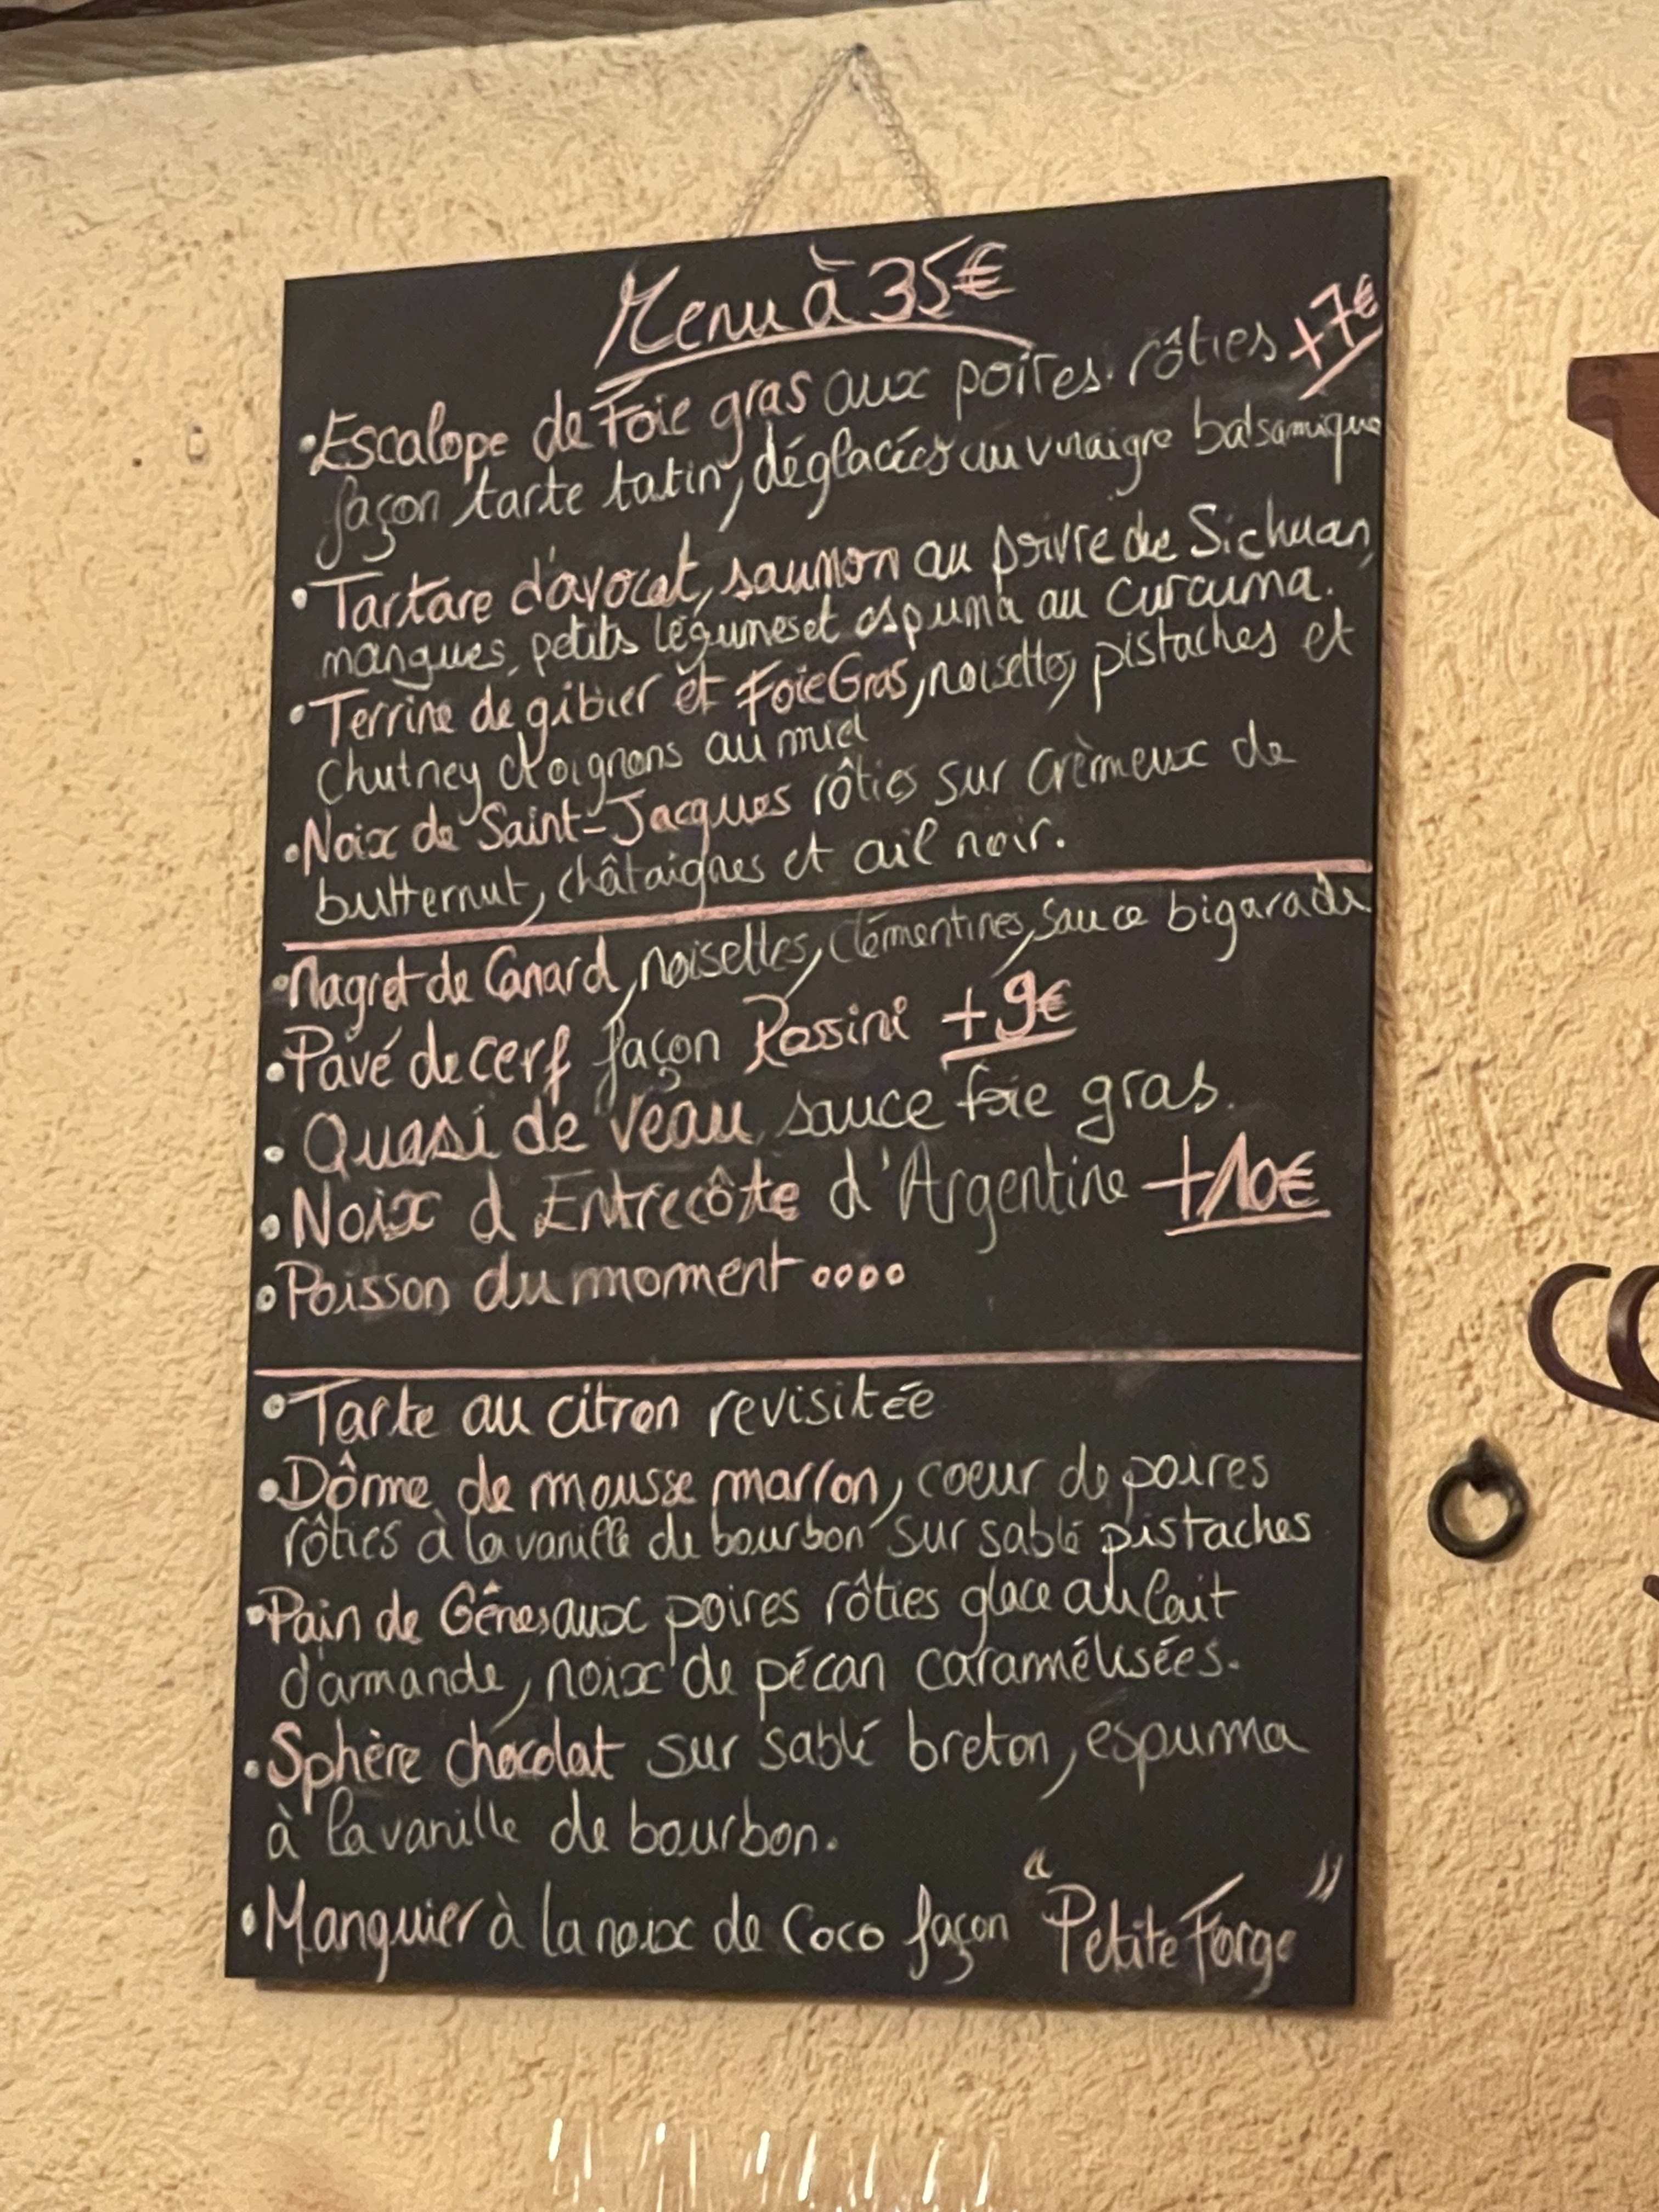 Menu à 35€
• Escalope de Foie gras aux poires rôties +7€
façon tarte tatin, déglacées au vinaigre balsamique
• Tartare d'avocat, saumon au poivre de Sichuan,
mangues, petits légumes et espuma au curcuma.
• Terrine de gibier et Foie Gras, noisettes, pistaches et
chutney d'oignons au miel
• Noix de Saint-Jacques rôties sur crèmeux de
butternut, châtaignes et ail noir.
• Magret de Canard, noisettes, clémentines, sauce bigarade
• Pavé de cerf façon Rossini +9€
• Quasi de veau, sauce foie gras.
• Noix d'Entrecôte d'Argentine +10€
• Poisson du moment ....
• Tarte au citron revisitée
• Dôme de mousse marron, coeur de poires
rôties à la vanille de bourbon sur sablé pistaches
• Pain de Gênes aux poires rôties glace au lait
d'amande, noix de pécan caramélisées.
• Sphère chocolat sur sablé breton, espuma
à la vanille de bourbon.
• Manguier à la noix de Coco façon "Petite Forge"